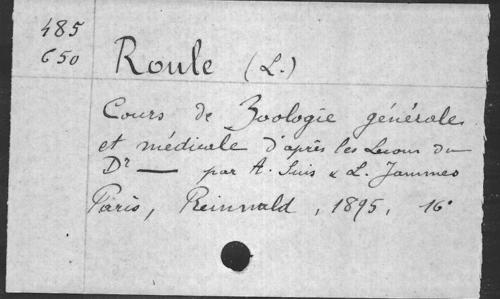 485
650
Roule (L.)
Cours de Zoologie générale
et médicale d'après les Leçons du
Dr — par A. Suis & L. Jammes
Paris, Reinwald, 1895, 16°